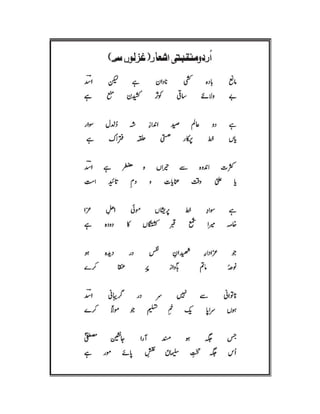 اُردو منقبتی اشعار (غزلوں سے)
مانع بادہ کشی ناداں ہے لیکن اسدؔ
بے ولائے ساقیِ کوثر کشیدن منع ہے
ہے دو عالم صید اندازِ شہِ دُلدل سوار
یاں خطِ پرکارِ ہستی حلقۂ فتراک ہے
کثرتِ اندوہ سے حیران و مضطر ہے اسدؔ
یا علیؑ وقتِ عنایات و دمِ تائید است
ہے سوادِ خط پریشاں موئیِ اہلِ عزا
خامہ میرا شمعِ قبرِ کشتگاں کا دودہ ہے
جو عزادارِ شہیدانِ نفس در دیدہ ہو
نوحۂ ماتم بآوازِ پرِ عنقا کرے
ناتوانی سے نہیں سر در گریبانی اسدؔ
ہوں سراپا یک خمِ تسلیم جو مولاؑ کرے
جس جگہ ہو مسند آرا جانشینِ مصطفیٰؐ
اُس جگہ تختِ سلیماں نقشِ پائے مور ہے